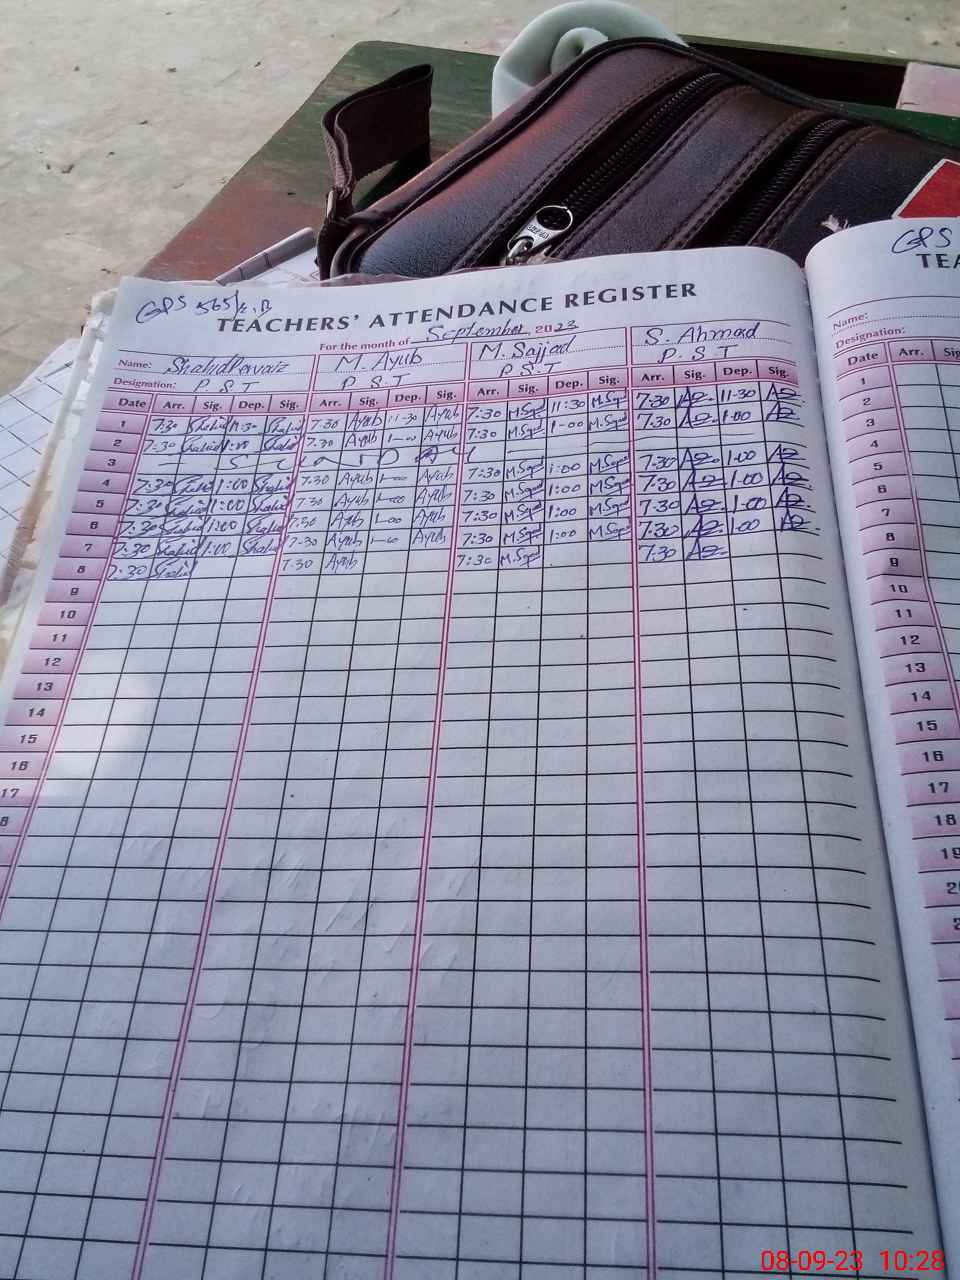 GPS 565/E.B
TEACHERS' ATTENDANCE REGISTER
For the month of September, 2023
Name: Shahid Pervaiz M. Ayub M. Sajjad S. Ahmad
Designation: P.S.T P.S.T P.S.T P.S.T
Date Arr. Sig. Dep. Sig. Arr. Sig. Dep. Sig. Arr. Sig. Dep. Sig. Arr. Sig. Dep. Sig.
1 7:30 Shahid 11:30 Shahid 7-30 Ayub 11-30 Ayub 7:30 M.Sajjad 11:30 M.Sajjad 7-30 11-30
2 7:30 Shahid 1:00 Shahid 7-30 Ayub 1-00 Ayub 7:30 M.Sajjad 1-00 M.Sajjad 7.30 1.00
3 SUNDAY
4 7:30 Shahid 1:00 Shahid 7-30 Ayub 1-00 Ayub 7:30 M.Sajjad 1:00 M.Sajjad 7.30 1.00
5 7:30 Shahid 1:00 Shahid 7-30 Ayub 1-00 Ayub 7:30 M.Sajjad 1:00 M.Sajjad 7.30 1-00
6 7:30 Shahid 1:00 Shahid 7-30 Ayub 1-00 Ayub 7:30 M.Sajjad 1:00 M.Sajjad 7-30 1-00
7 7:30 Shahid 1:00 Shahid 7-30 Ayub 1-00 Ayub 7:30 M.Sajjad 1:00 M.Sajjad 7.30 1.00
8 7:30 Shahid 7.30 Ayub 7:30 M.Sajjad 7.30
9
10
11
12
13
14
15
16
17
8
GPS
TEA
Name:
Designation:
Date Arr. Sig
1
2
3
4
5
6
7
8
9
10
11
12
13
14
15
16
17
18
19
2
2
08-09-23 10:28